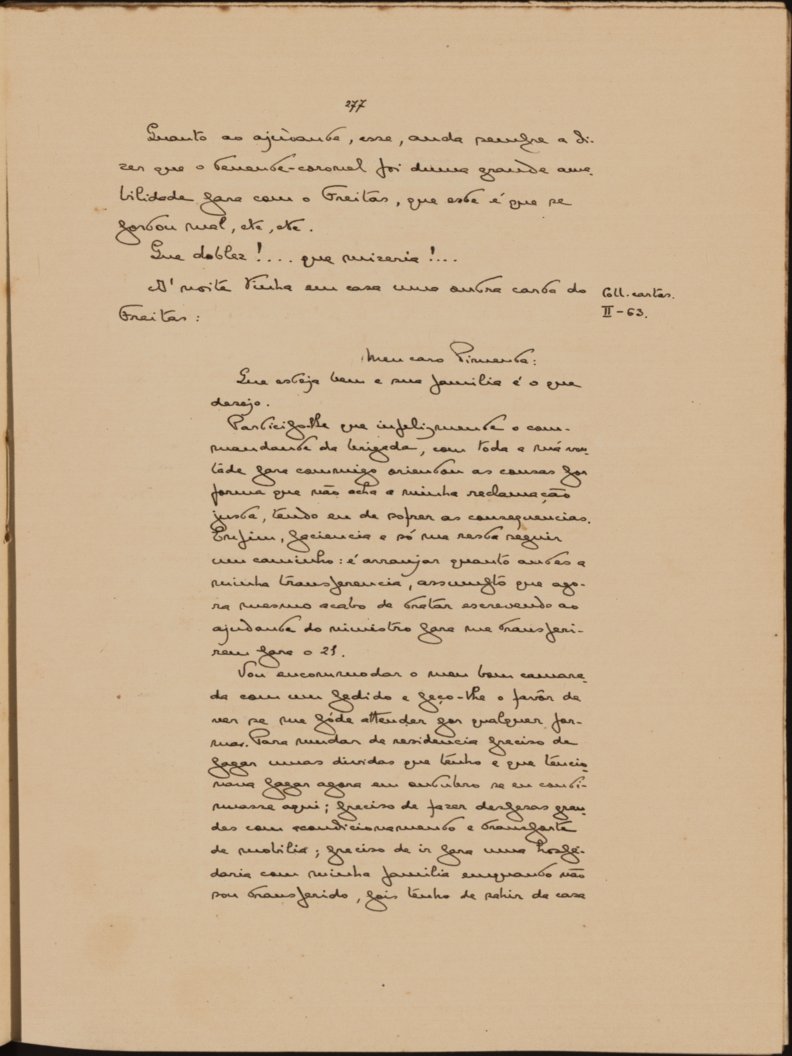 277
Quanto ao ajudante, esse, anda sempre a di-
zer que o tenente-coronel foi duma grande ama-
bilidade para com o Freitas, que este é que se
portou mal, etc, etc.
Que doblez!... que mizeria!...
A' noite vinha em casa uma outra carta do
Coll. cartas.
II-63.
Freitas:
Meu caro Pimenta:
Que esteja bem e sua familia é o que
desejo.
Participo-lhe que infelizmente o com-
mandante da brigada, com toda a má von-
tade para commigo orientou as cousas por
forma que não acha a minha reclamação
justa, tendo eu de sofrer as consequencias.
Emfim, paciencia e só me resta seguir
um caminho: é arranjar quanto antes a
minha transferencia, assumpto que ago-
ra mesmo acabo de tratar escrevendo ao
ajudante do ministro para me transferi-
rem para o 21.
Vou encommodar o meu bom camara-
da com um pedido e peço-lhe o favôr de
ver se me póde attender por qualquer for-
ma. Para mudar de residencia preciso de
pagar umas dividas que tenho e que tencio-
nava pagar agora em outubro se eu conti-
nuasse aqui; preciso de fazer despesas gran-
des com acondicionamento e transporte
de mobilia; preciso de ir para uma hospe-
daria com minha familia emquanto não
sou transferido, pois tenho de sahir da casa